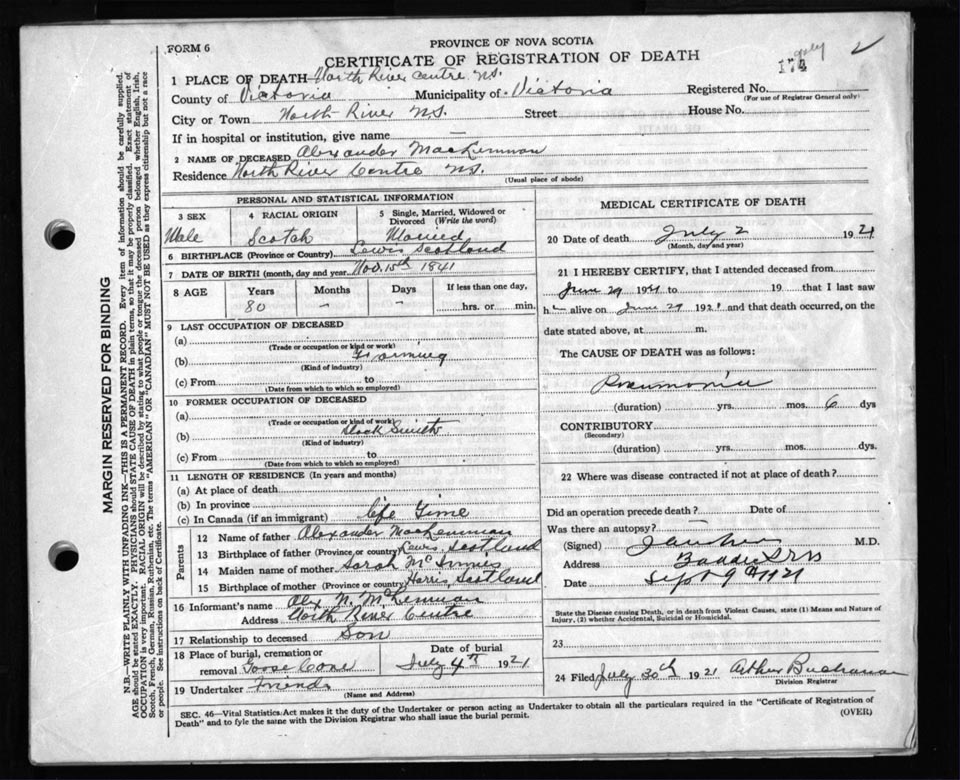 FORM 6
PROVINCE OF NOVA SCOTIA
CERTIFICATE OF REGISTRATION OF DEATH
174
2
1 PLACE OF DEATH North River Centre N.S.
County of Victoria Municipality of Victoria Registered No.
(For use of Registrar General only)
City or Town North River N.S. Street House No.
If in hospital or institution, give name —
2 NAME OF DECEASED Alexander MacLennan
Residence North River Centre N.S.
(Usual place of abode)
MARGIN RESERVED FOR BINDING
N.B.—WRITE PLAINLY WITH UNFADING INK—THIS IS A PERMANENT RECORD. Every item of information should be carefully supplied.
AGE should be stated EXACTLY. PHYSICIANS should STATE CAUSE OF DEATH in plain terms, so that it may be properly classified. Exact statement of
OCCUPATION is very important. RACIAL ORIGIN will be described by stating to what people or tongue the deceased person belonged whether English, Irish,
Scotch, French, German, Russian, Ruthenian, etc. The terms "AMERICAN" OR "CANADIAN" MUST NOT BE USED as they express citizenship but not a race
or people. See instructions on back of Certificate.
PERSONAL AND STATISTICAL INFORMATION
3 SEX
Male
4 RACIAL ORIGIN
Scotch
5 Single, Married, Widowed or
Divorced (Write the word)
Married
6 BIRTHPLACE (Province or Country) Lewis Scotland
7 DATE OF BIRTH (month, day and year) Nov. 15th 1841
8 AGE
Years
80
Months
–
Days
–
If less than one day,
hrs. or min.
9 LAST OCCUPATION OF DECEASED
(a)
(Trade or occupation or kind or work)
(b) Farming
(Kind of industry)
(c) From to
(Date from which to which so employed)
10 FORMER OCCUPATION OF DECEASED
(a)
(Trade or occupation or kind of work)
(b) Smith
(Kind of industry)
(c) From to
(Date from which to which so employed)
11 LENGTH OF RESIDENCE (In years and months)
(a) At place of death
(b) In province
(c) In Canada (if an immigrant) life time
Parents
12 Name of father Alexander MacLennan
13 Birthplace of father (Province or country) Lewis, Scotland
14 Maiden name of mother Sarah McInnes
15 Birthplace of mother (Province or country) Harris, Scotland
16 Informant's name Alex N. McLennan
Address North River Centre
17 Relationship to deceased Son
18 Place of burial, cremation or
removal Goose Cove
Date of burial
July 4th 1921
19 Undertaker Friends
(Name and Address)
MEDICAL CERTIFICATE OF DEATH
20 Date of death July 2 1921
(Month, day and year)
21 I HEREBY CERTIFY, that I attended deceased from
June 29 1921 to 19 that I last saw
h alive on June 29 1921 and that death occurred, on the
date stated above, at m.
The CAUSE OF DEATH was as follows:
Pneumonia
(duration) yrs. mos. 6 dys
CONTRIBUTORY
(Secondary)
(duration) yrs. mos. dys.
22 Where was disease contracted if not at place of death?
Did an operation precede death? Date of
Was there an autopsy? —
(Signed) M.D.
Address
Date Sept 9
State the Disease causing Death, or in death from Violent Causes, state (1) Means and Nature of
Injury, (2) whether Accidental, Suicidal or Homicidal.
23
24 Filed July 30th 1921 Arthur Buchanan
Division Registrar
SEC. 46—Vital Statistics Act makes it the duty of the Undertaker or person acting as Undertaker to obtain all the particulars required in the "Certificate of Registration of
Death" and to fyle the same with the Division Registrar who shall issue the burial permit.
(OVER)